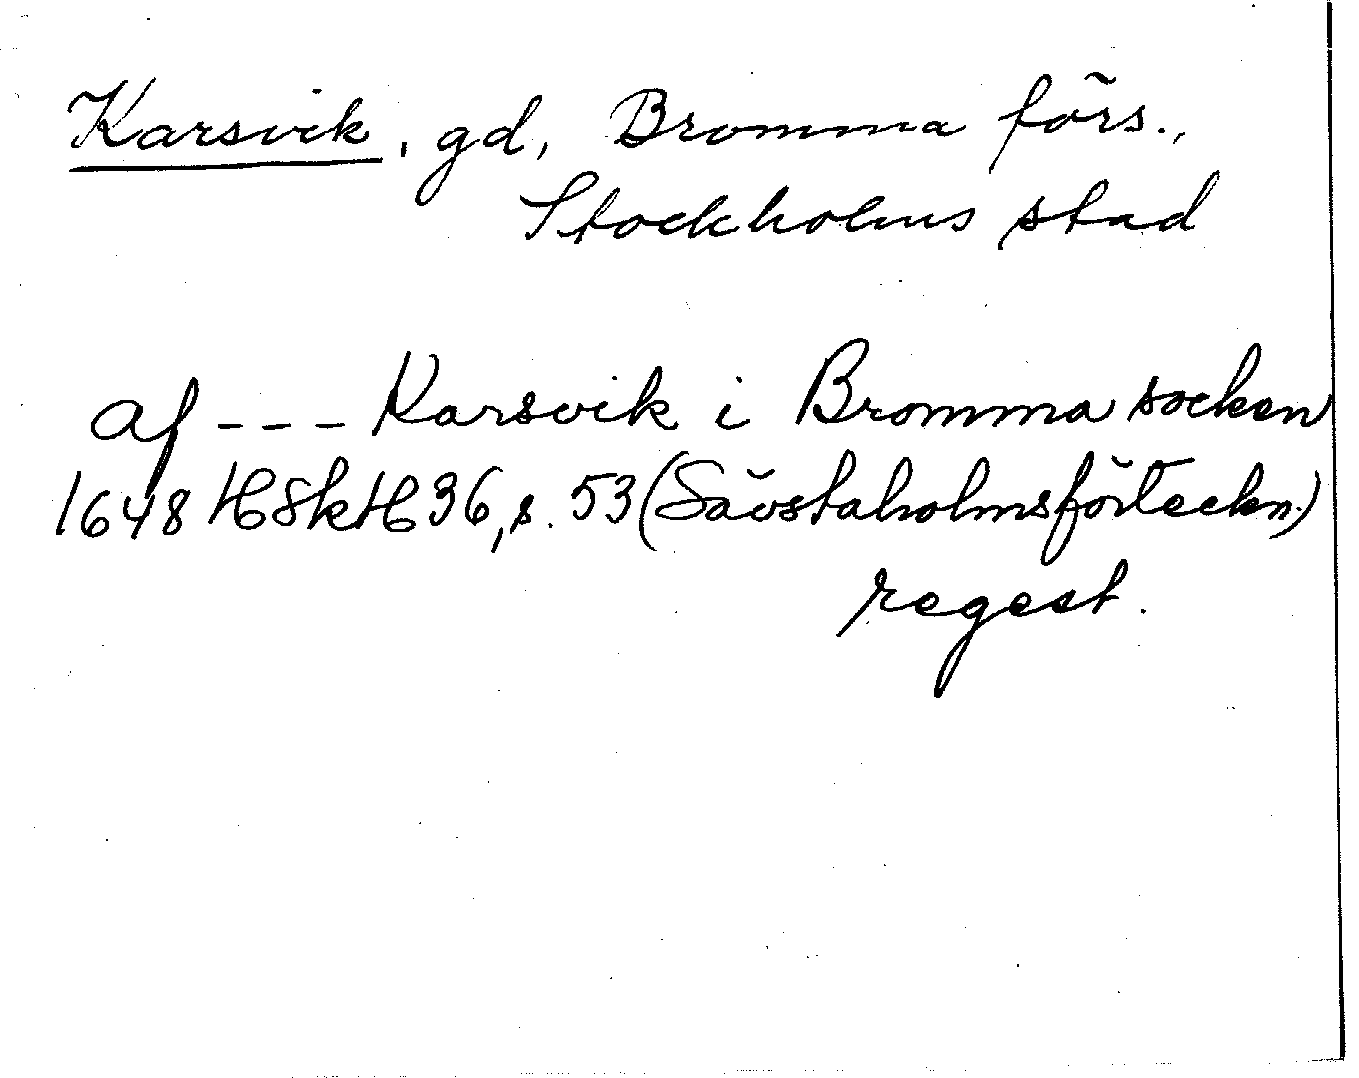 Karsvik, gd, Bromma förs.,
Stockholms stad
af --- Karsvik i Bromma socken
1648 HSkH 36, s. 53 (Sävstaholmsförteckn.)
regest.